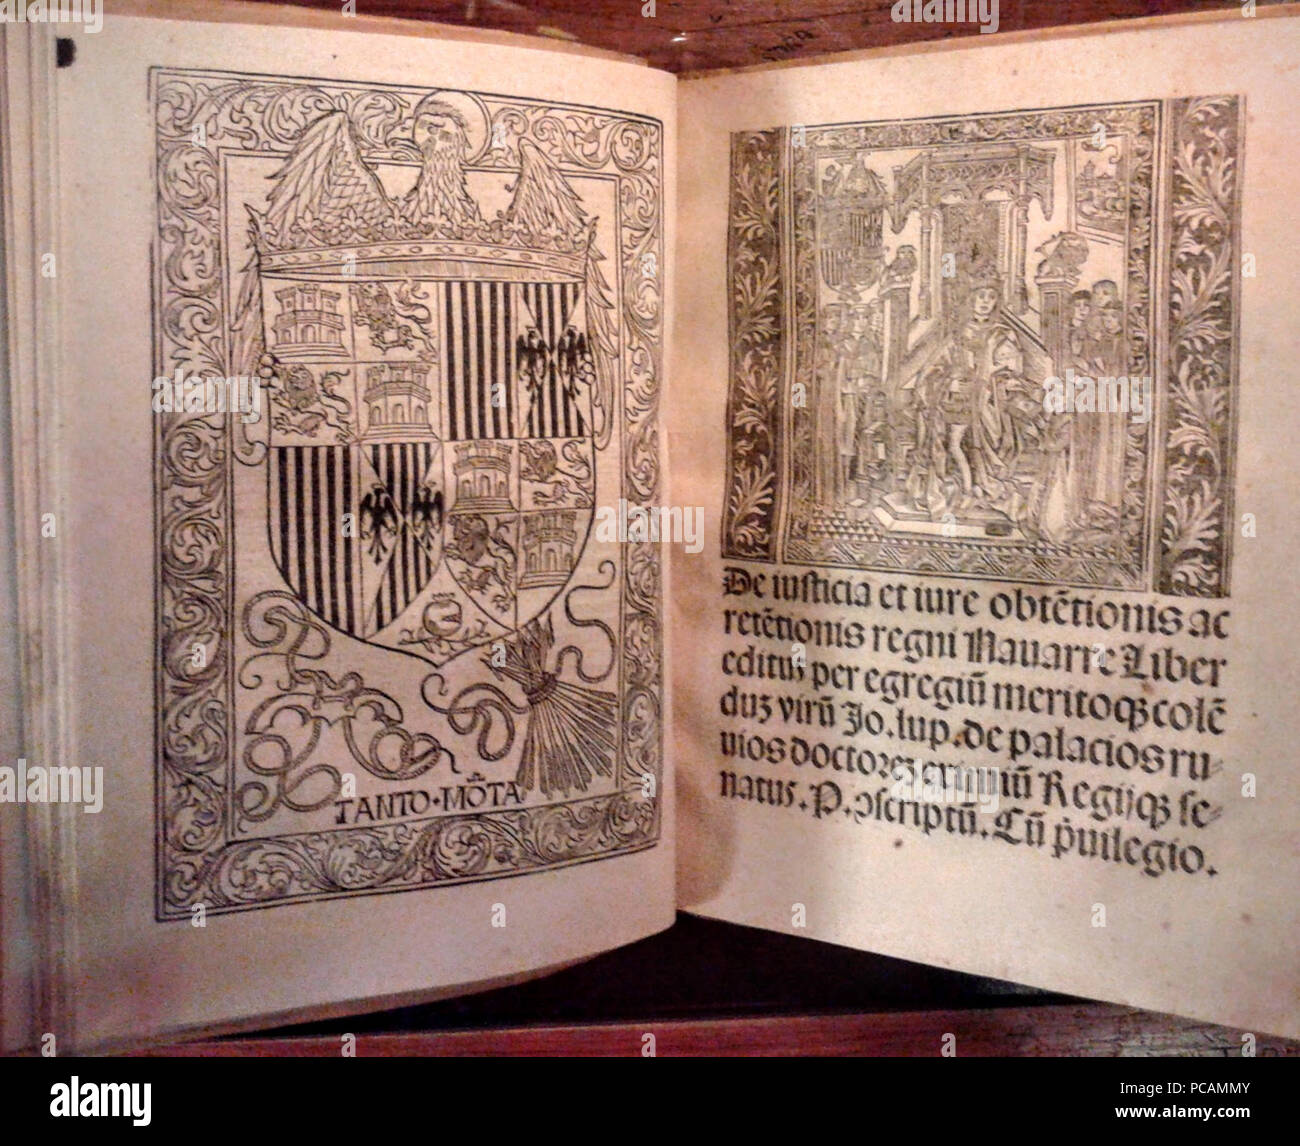 TANTO · MŌTA
De iusticia et iure obtētionis ac
retētionis regni Nauarre Liber
editus per egregiū meritoqꝫ colē
duꝫ virū Jo. lup. de palacios ru⸗
uios doctoreꝫ eximiū Regijqꝫ se⸗
natus. P. ꝯscriptū. Cū p̄uilegio.
alamy
alamy
alamy
Image ID: PCAMMY
www.alamy.com